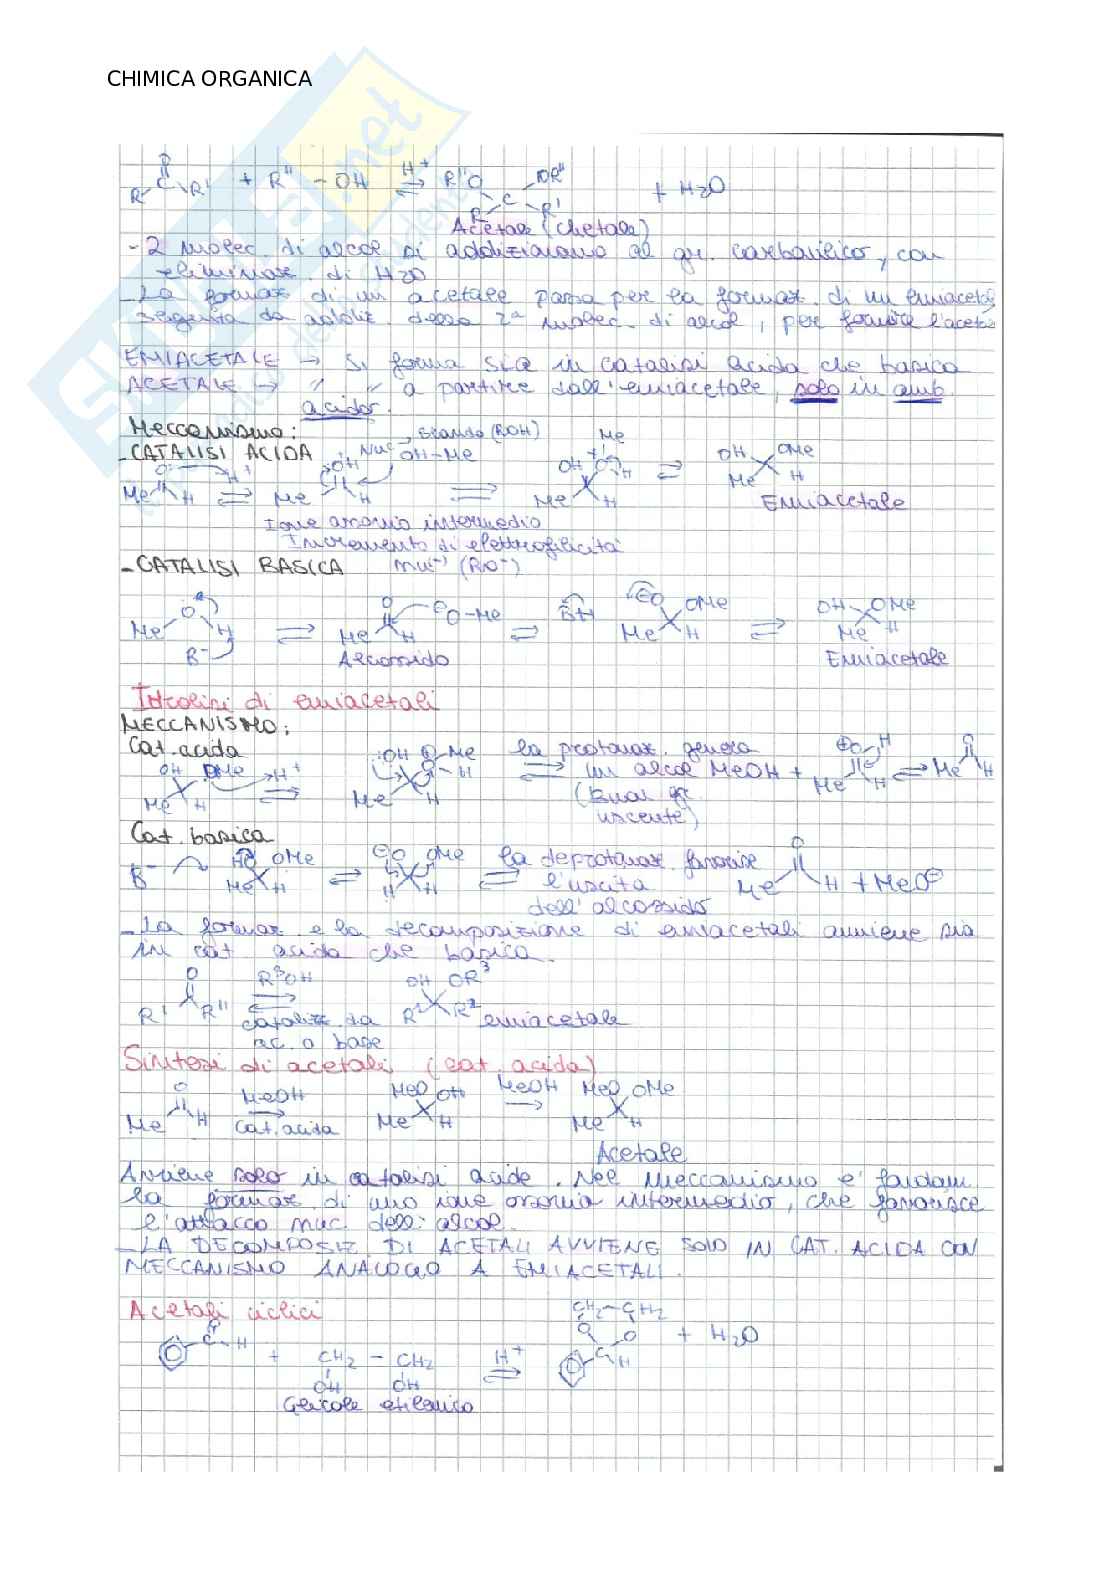 CHIMICA ORGANICA
O
R C R' + R" - OH ⇌ H+ R"O OR" C R R' + H2O
Acetale (chetale)
- 2 molec. di alcol si addizionano al gr. carbonilico, con
eliminaz. di H2O
- La formaz. di un acetale passa per la formaz. di un emiacetale
seguita da addiz. della 2ª molec. di alcol, per fornire l'acetale
EMIACETALE → Si forma sia in catalisi acida che basica
ACETALE → " " a partire dall'emiacetale, solo in amb.
acido.
Meccanismo:
- CATALISI ACIDA Nuc (ROH)
OH-Me
Me H ⇌ Me H ⇌ OH O Me H Me H ⇌ OH OMe Me H
Emiacetale
Ione intermedio
Incremento di elettrofilicità
- CATALISI BASICA nuc (RO-)
O Me H B- ⇌ O Me H O-Me ⇌ BH O OMe Me H ⇌ OH OMe Me H
Alcossido Emiacetale
Idrolisi di emiacetali
MECCANISMO:
Cat. acida
OH OMe H+ Me H ⇌ OH O-Me H Me H ⇌ la protonaz. genera
un alcol MeOH + Me H ⇌ Me H
(buon gr.
uscente)
Cat. basica
B- HO OMe Me H ⇌ O OMe H ⇌ la deprotonaz. favorisce
l'uscita
dell'alcossido
O Me H + MeO-
- La formaz. e la decomposizione di emiacetali avviene sia
in cat acida che basica.
O R' R" ⇌ R3OH OH OR3 R1 R2 emiacetale
catalizz. da
ac. o base
Sintesi di acetali (cat. acida)
O Me H → MeOH Cat. acida MeO OH Me H → MeOH MeO OMe Me H
Acetale
Avviene solo in catalisi acida. Nel meccanismo e' fondam.
la formaz. di uno ione intermedio, che favorisce
l'attacco nuc. dell' alcol.
- LA DECOMPOSIZ. DI ACETALI AVVIENE SOLO IN CAT. ACIDA CON
MECCANISMO ANALOGO A EMIACETALI.
Acetali ciclici
O C H + CH2 - CH2 OH OH ⇌ H+ CH2-CH2 O O C H + H2O
Glicole etilenico